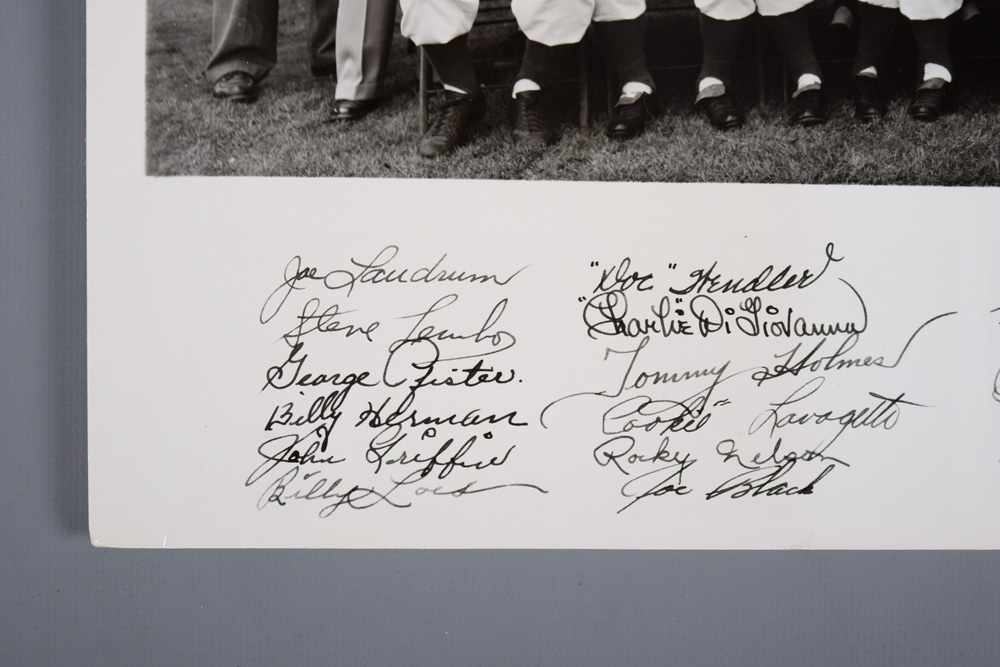 Joe Landrum
Steve Lembo
George Pfister.
Billy Herman
John Griffin
Billy Loes
"Doc" Wendler
"Charlie" Di Giovanna
Tommy Holmes
"Cookie" Lavagetto
Rocky Nelson
Joe Black